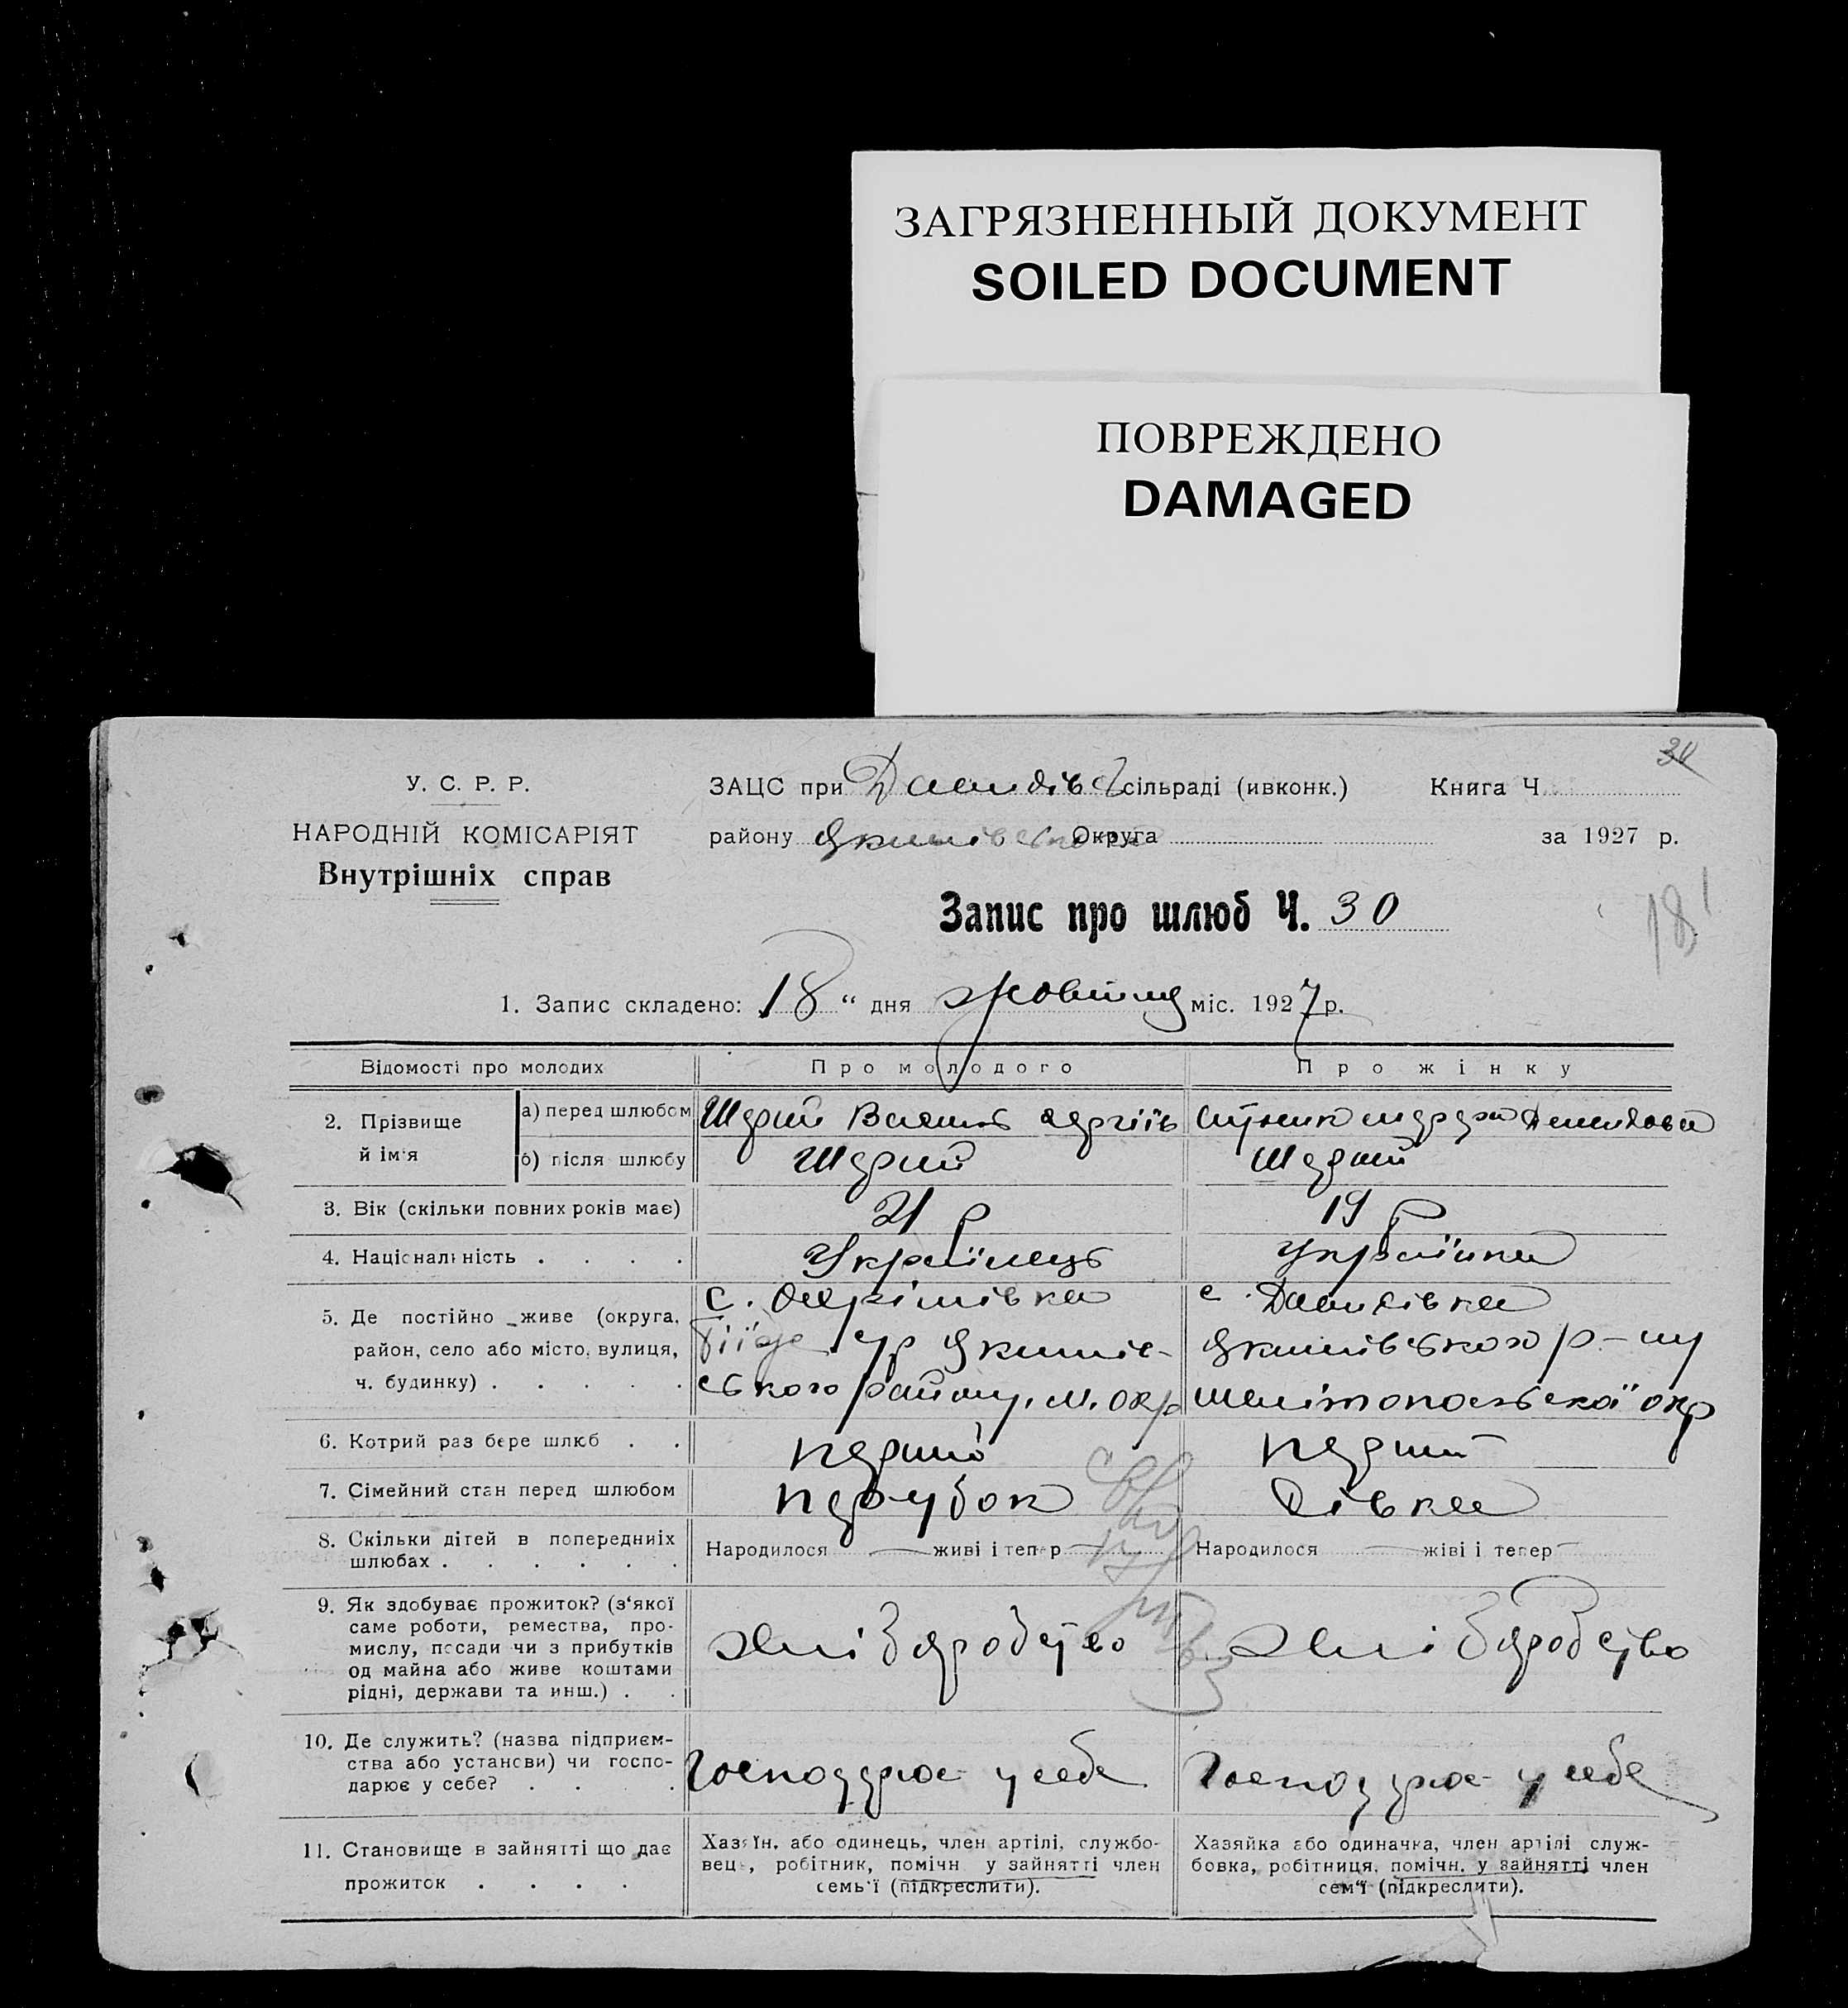 ЗАГРЯЗНЕННЫЙ ДОКУМЕНТ
SOILED DOCUMENT
ПОВРЕЖДЕНО
DAMAGED
30
У. С. Р. Р.
НАРОДНІЙ КОМІСАРІЯТ
Внутрішніх справ
ЗАЦС при Давидівс сільраді (ивконк.) Книга Ч.
району Якимівсько Округа за 1927 р.
Запис про шлюб Ч. 30
18
1. Запис складено: 18 “ дня Жовтня міс. 1927 р.
Відомості про молодих Про молодого Про жінку
2. Прізвище й ім'я
а) перед шлюбом Шерий Василь
б) після шлюбу Шерий Шерий
3. Вік (скільки повних років має) 21 р 19 р
4. Національність . . . . Українець Українка
5. Де постійно живе (округа, район, село або місто, вулиця, ч. будинку) . . . . .
с. Охрімівка
Якимів-
ського району, М. окр
с. Давидівка
Якимівського р-ну
Мелітопольської окр
6. Котрий раз бере шлюб . . перший перший
7. Сімейний стан перед шлюбом парубок Дівка
8. Скільки дітей в попередниіх шлюбах . . . . . . Народилося — живі і тепер — Народилося — жіві і тепер —
9. Як здобуває прожиток? (з‘якої
саме роботи, ремества, про-
мислу, посади чи з прибутків
од майна або живе коштами
рідні, держави та инш.) . .
хліборобство хліборобство
10. Де служить? (назва підприєм-
ства або установи) чи госпо-
дарює у себе? . . . .
Господарює у себе Господарює у себе
11. Становище в зайнятті що дає
прожиток . . . .
Хазяїн, або одинець, член артілі, службо-
вець, робітник, помічн. у зайнятті член
семь'ї (підкреслити).
Хазяйка або одиначка, член артілі служ-
бовка, робітниця, помічн. у зайнятті член
сем'ї (підкреслити).